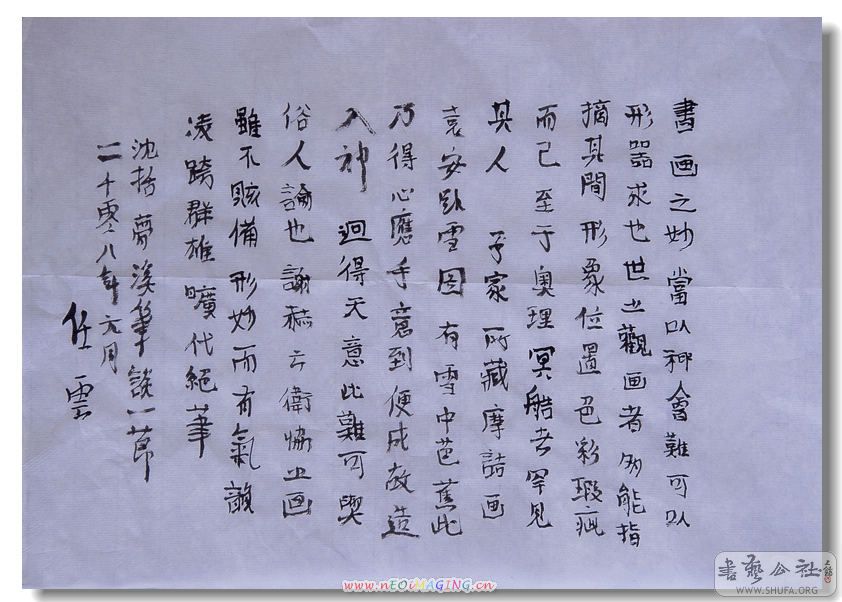 書画之妙當以神會難可以
形器求也世之觀画者多能指
摘其間形象位置色彩瑕疵
而已至于奧理冥造者罕見
其人 予家所藏摩詰画
袁安臥雪图有雪中芭蕉此
乃得心應手意到便成故造
入神 迴得天意此難可與
俗人論也謝赫云衛協之画
雖不該備形妙而有氣韻
凌跨群雄曠代絕筆
沈括夢溪筆談一節
二千零八年六月
任雲
書藝公社
WWW.SHUFA.ORG
www.nEOiMAGING.cn